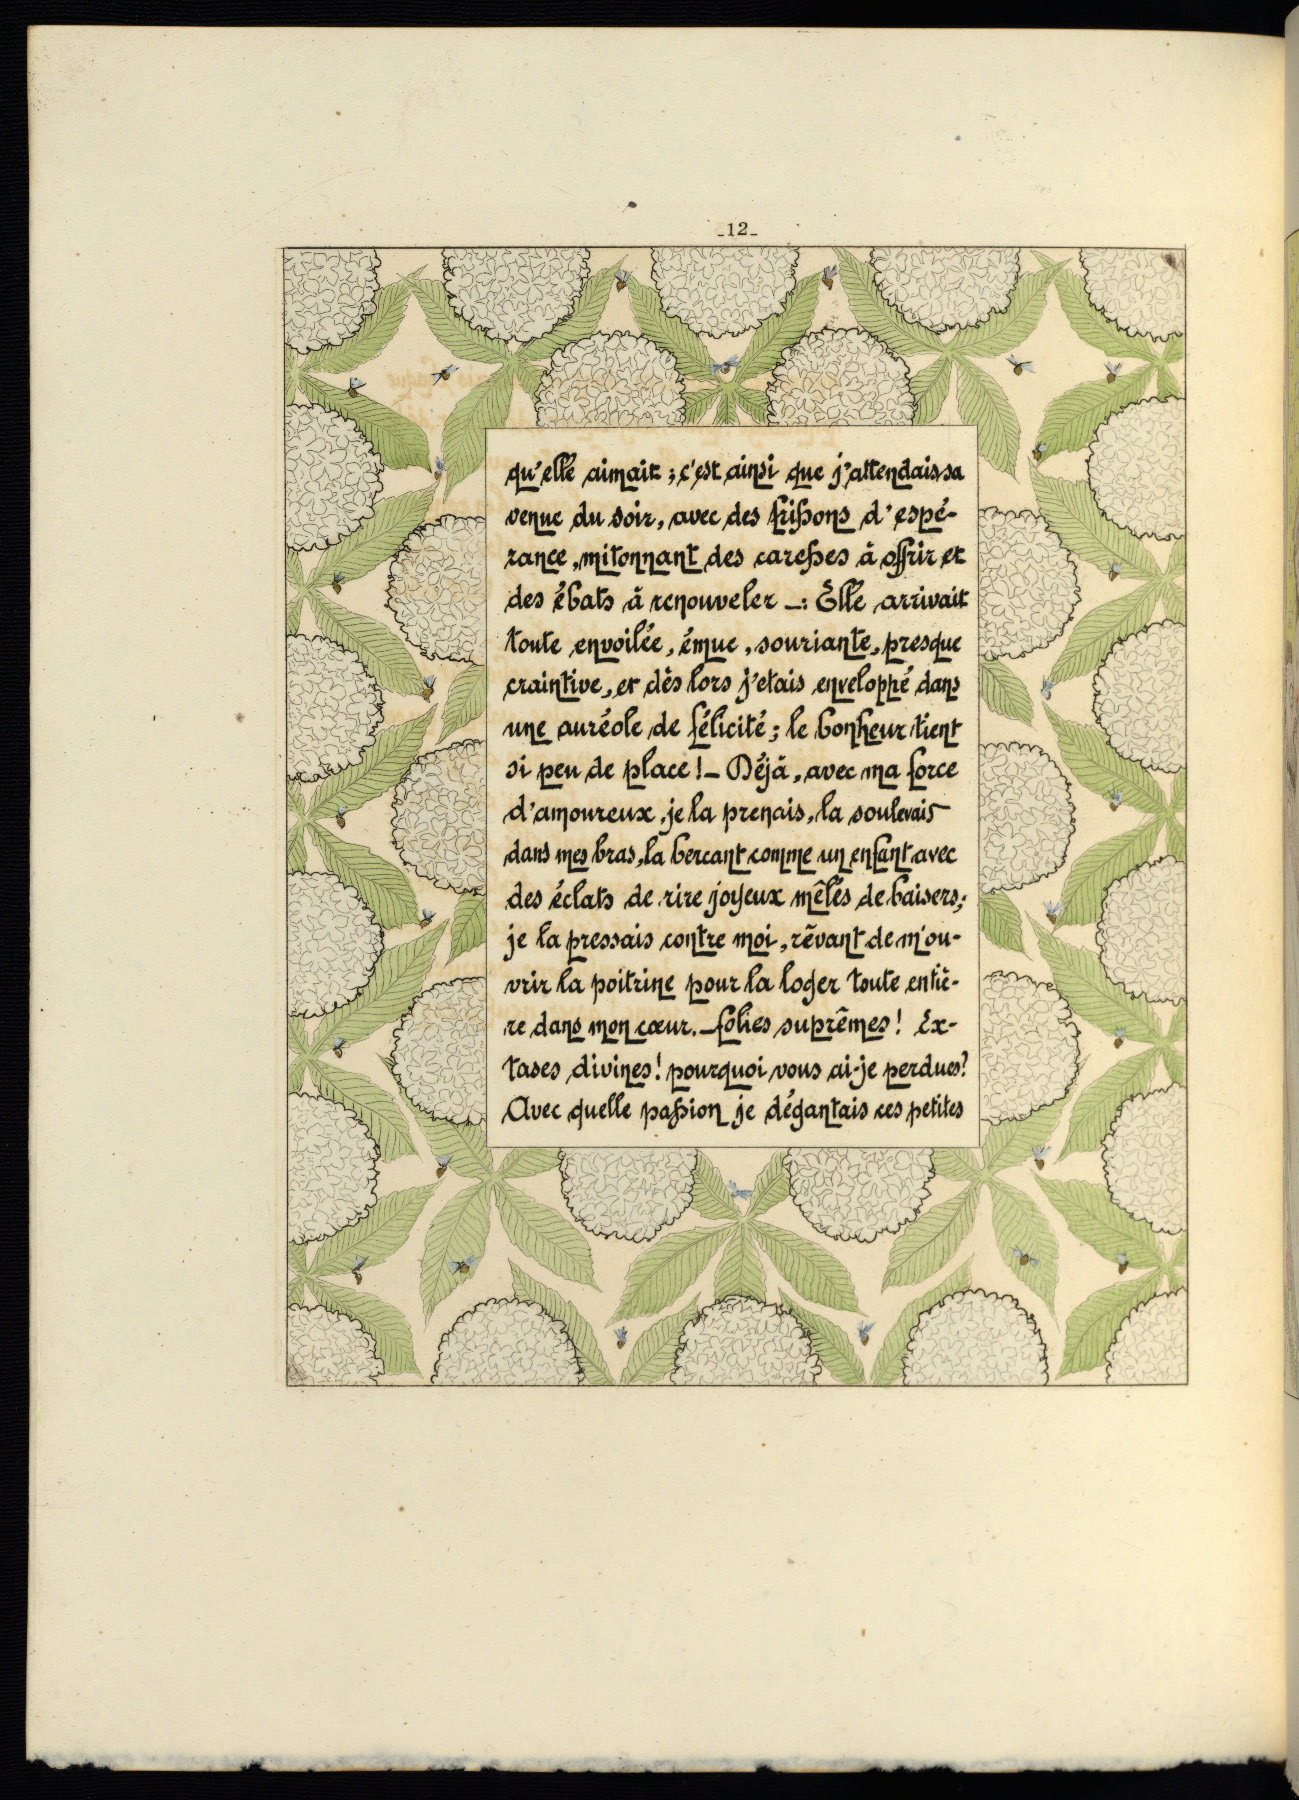 _12_
qu'elle aimait ; c'est ainsi que j'attendais sa
venue du soir, avec des frissons d'espé-
rance, mitonnant des caresses à offrir et
des ébats à renouveler _. Elle arrivait
toute envoilée, émue, souriante, presque
craintive, et dès lors j'etais enveloppé dans
une auréole de félicité ; le bonheur tient
si peu de place ! _ Déjà, avec ma force
d'amoureux, je la prenais, la soulevais
dans mes bras, la bercant comme un enfant avec
des éclats de rire joyeux mêlés de baisers ;
je la pressais contre moi, rêvant de m'ou-
vrir la poitrine pour la loger toute entiè-
re dans mon cœur. _ folies suprêmes ! Ex-
tases divines ! pourquoi vous ai-je perdues ?
Avec quelle passion je dégantais ces petites